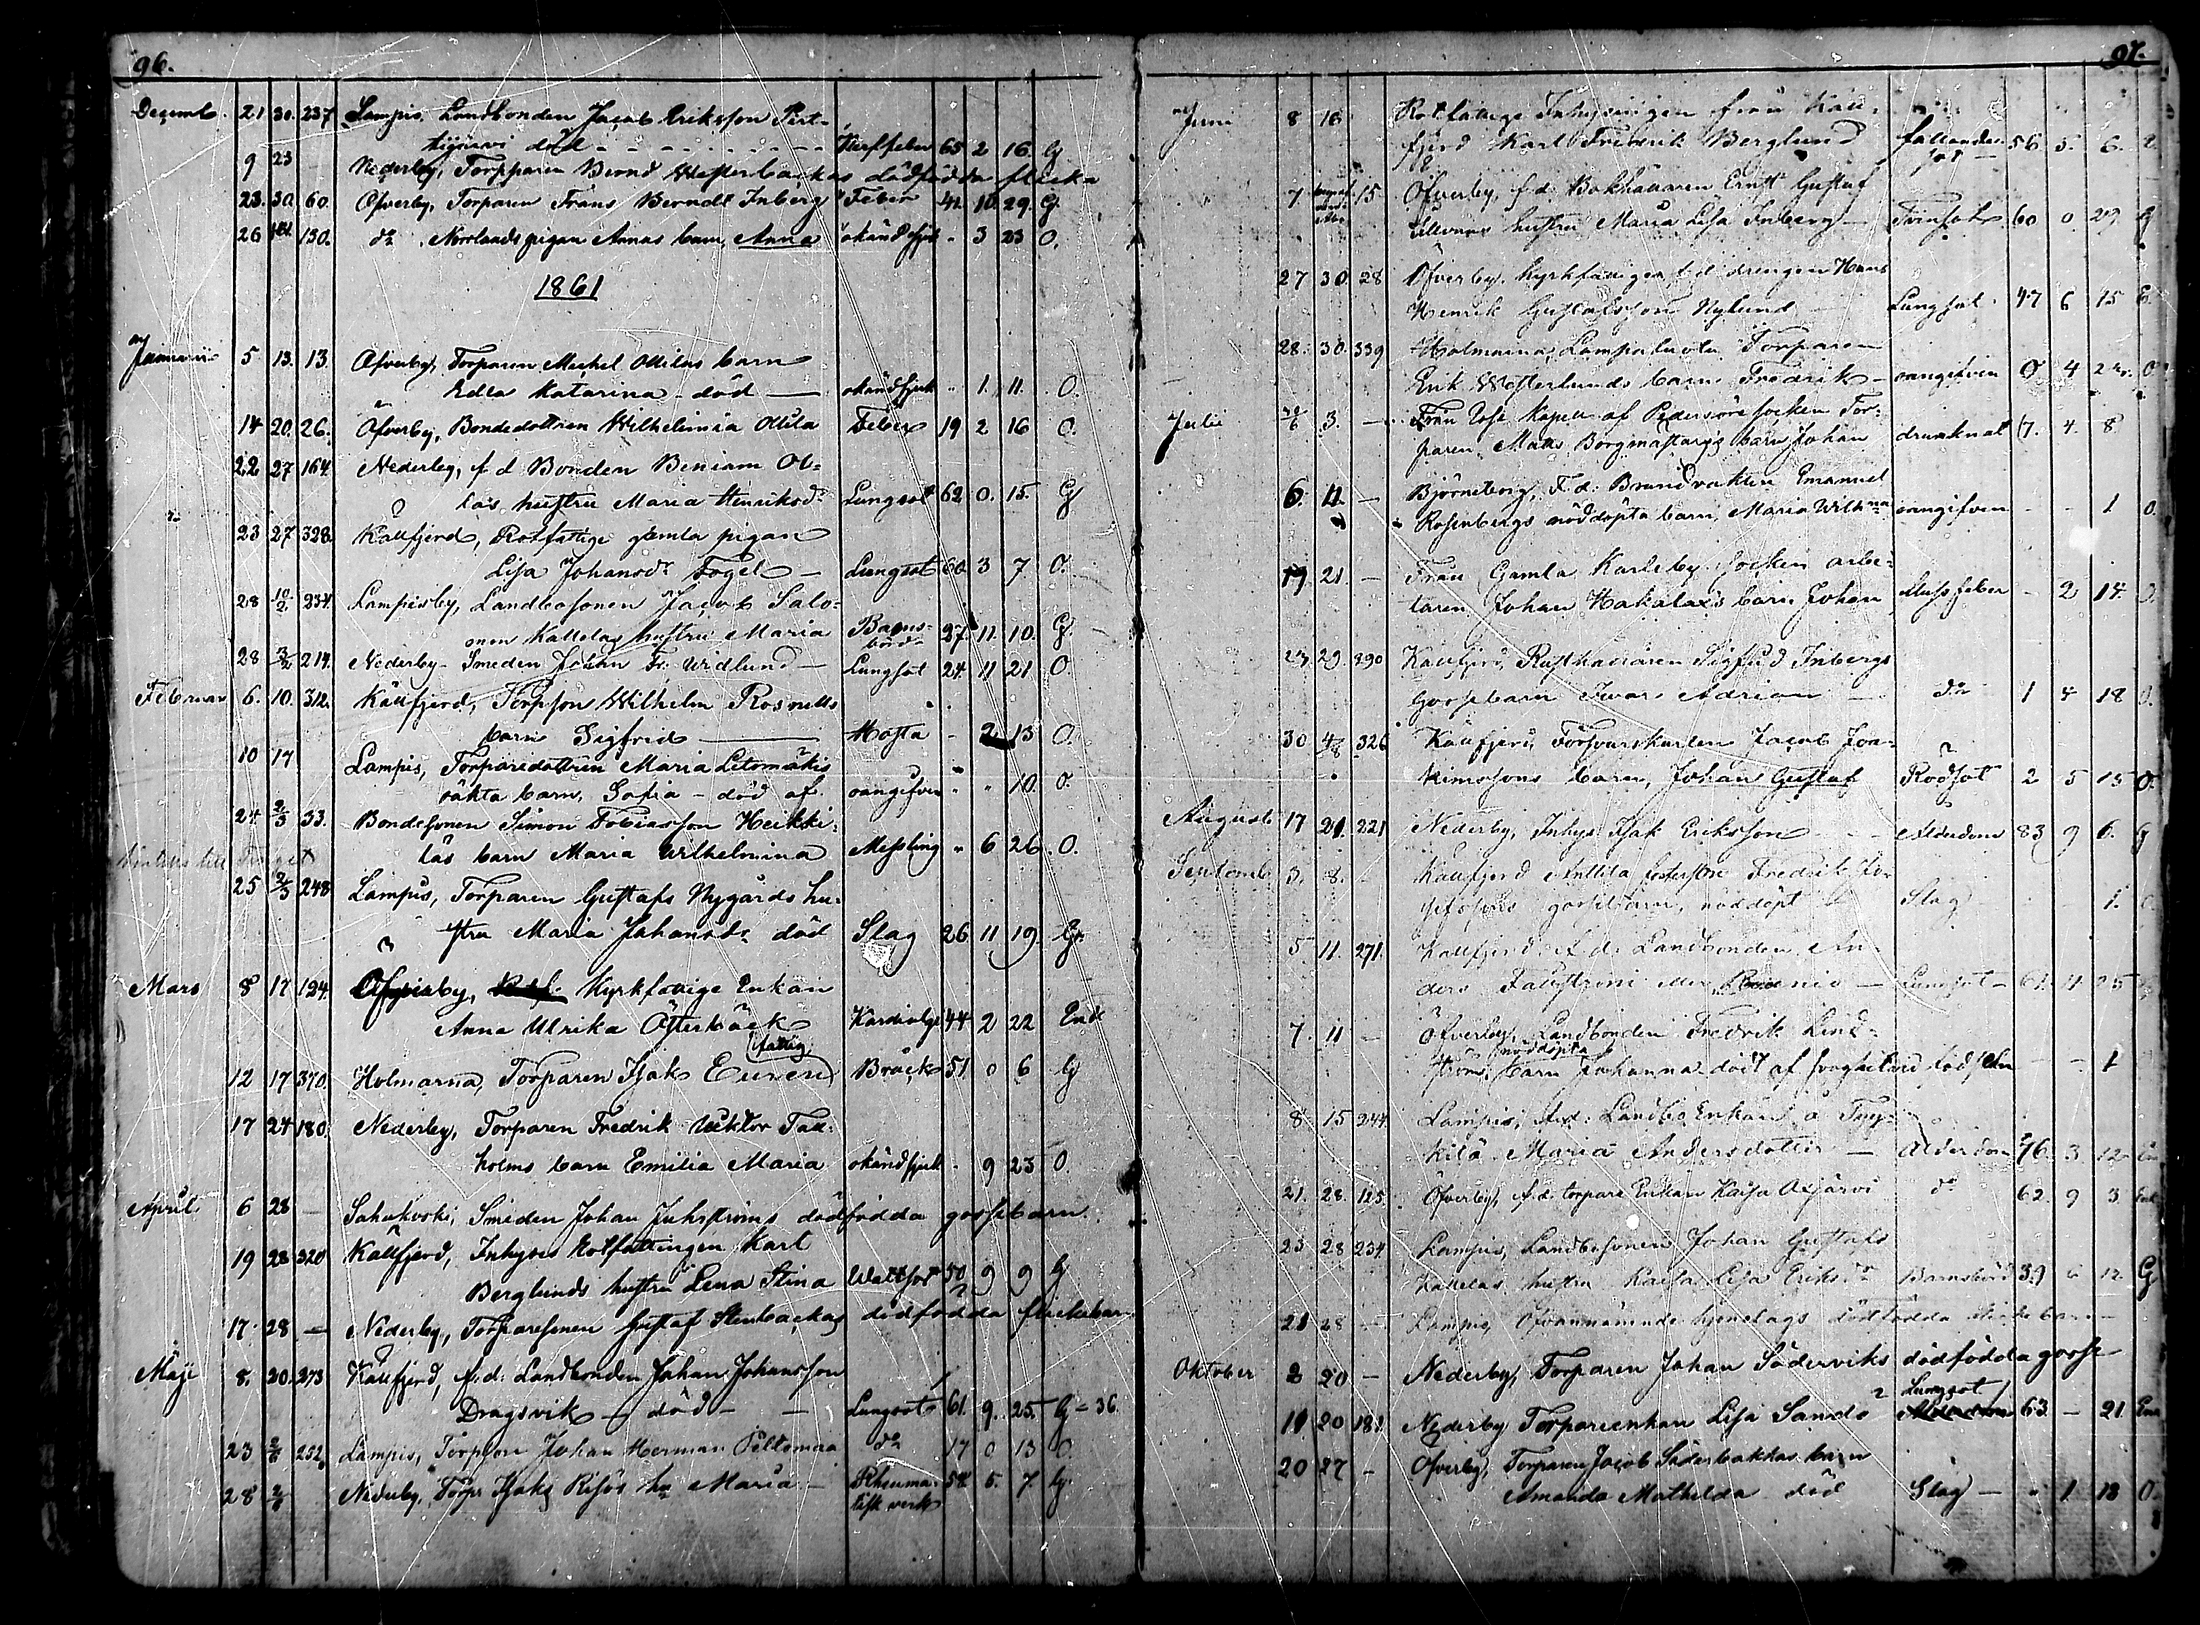 96.
Decemb. 21 30. 237 Lampis. Landbonden Jacob Eriksson Pert-
död - Nerffeber 65 2 16. G
9 23 Nederby, Torpparen Bernd Westerbackas dödfödda flicka
23. 30. 60. Öfverby, Torparen Frans Berndt Inberg Feber 42. 10. 29. G.
26 130. do. Norrlands pigan Annas barn, Anna okänd sjuk - 3 23 O.
1861
Januarii 5 13. 13. Öfverby, Torparen Michel Ollilas barn
Edla Katarina - död - okänd sjuk " 1. 11. O.
14 20. 26. Öfverby, Bondedottren Wilhelmina Ollila Feber 19 2 16 O.
22 27 164. Nederby, f d Bonden Beniam Ol-
las hustru Maria Henriksdr Lungsot 62. 0. 15. G
23 27 328. Kallfjerd, Rotfattige gamla pigan
Lisa Johansdr Fogel - Lungsot 60 3 7. O.
28 10/2. 234. Lampisby, Landbosonen Jacob Salo-
mon Kallelas hustru Maria Barns-
börd 27. 11. 10. G.
28 3/2 214. Nederby - Smeden Johan Fr. Widlund - Lungsot 24. 11 21 O.
Februar 6. 10. 312. Kallfjerd, Torpson Wilhelm Rosnells
barn Sigfrid - Hosta - 2 13 O.
10 17 Lampis, Torparedottren Maria Letomäkis
oäkta barn, Sofia - död af oangifven " " 10. O.
24 2/3 33. Bondesonen Simon Tobiasson Heikki-
läs barn Maria Wilhelmina Messling " 6 26. O.
25 2/3 248 Lampis, Torparen Gustafs Nygårds hu-
stru Maria Johansdr död Slag 26 11 19. G.
Mars 8 17 124. Öfverby, Kyrkfattige Enkan
Anna Ulrika Österback Kardialgi 44 2 22 Enk
(fattig)
12 17 370. Holmarna, Torparen Isak Euren Bråck 51 0 6 G
17 24 180. Nederby, Torparen Fredrik Wiktor Tall-
holms barn Emilia Maria okänd sjuk - 9 23 O.
April 6 28 - Sahakoski, Smeden Johan Juhlströms dödfödda gossebarn.
19 28 320 Kallfjerd, Inhyses Rotfattingen Karl
Berglunds hustru Lena Stina Wattsot 50 9 9 G
17. 28 - Nederby, Torparesonen Gustaf Stenbackas dödfödda flickebarn
Maji 8. 20. 273 Kallfjerd, f.d. Landbonden Johan Johansson
Dragsvik - död - Lungsot 61. 9. 25. G = 36.
23 2/6 252. Lampis, Torpson Johan Herman Peltomaa do 17 0 13 O.
28 2/6 Nederby, Torpr Isaks Risös hu Maria - Rheuma-
tisk verk 54 5. 7. G.
97.
Juni 8 16 Rotfattige Inhysingen från Käll-
fjerd Karl Fredrik Berglund fallandes-
sot - 56. 5. 6. G.
7 15 Öfverby, f.d. Bokhållaren Ernst Gustaf
hustru Maria Lisa Inberg - Twinsot 60 0 29 G
27 30. 28 Öfverby. kyrkfattigen f.d. drengen Hans
Henrik Gustafsson Nylund - Lungsot. 47 6 15 G.
28. 30. 339 Holmarna, Lampaluoto Torparen
Erik Westerlunds barn Fredrik - oangifven 0 4 O
Juli 30/6 3. - Från Esse Kapell af Pedersöre socken Tor-
paren Matts Borgmästargs barn Johan drunknat 17. 4. 8
6. 11. - Björneborg, F.d. Brandvakten Emanuel
Rosenbergs nöddöpta barn, Maria Wilhna oangifven - - 1 O.
19 21 - Från Gamla Karleby socken arbe-
taren Johan Hakalax's barn Johan slussfeber - 2 14. O.
24. 29. 890 Kallfjerd, Rusthållaren Sigfrid Inbergs
gossebarn Ivar Adrian - do 1 4 18 O.
30 4/8 326 Kallfjerd, Försvarskarlen Jacob Joa-
kimssons barn, Johan Gustaf Rödsot 2 5 15 O.
Augusti 17 21. 221 Nederby, Inhys Isak Eriksson - Ålderdom 83 9 6. G
Septemb 3. 8. - Kallfjerd Anttila festerson Fredrik Jo-
sefssons gossebarn, nöddöpt Slag - - 1. O
5 11. 271. Kallfjerd. f.d. Landbonden An-
ders Fallström eller - Lungsot - 61. 4. 25 G
7. 11 - Öfverby, Landbonden Fredrik Lind-
ströms nöddöpta barn Johanna död af svaghet - - 1
8 15 244. Lampis, f.d. Landbo Enkan å Tny-
kilä Maria Andersdotter - Ålderdom 76. 3. 12.
21. 28. 125. Öfverby, f.d. torpare Enkan Kajsa Oxjärvi do 62. 9 3 Enk
23 28 234. Lampis, Landbosonen Johan Gustafs
Kallelas hustru Kaisa Lisa Eriksdr Barnsbörd 39 6 12 G
21 28 - Lampis, Ofvannämnde hjonelags dödfödda flickebarn -
Oktober 2 20 - Nederby, Torparen Johan Söderviks dödfödda gosse
11 20 181 Nederby Torparenkan Lisa Sandö Lungsot 63. - 21. Enk
20 27 - Öfverby, Torparen Jacob Söderbackkas barn
Amanda Mathilda död Slag - " 1 18 O.